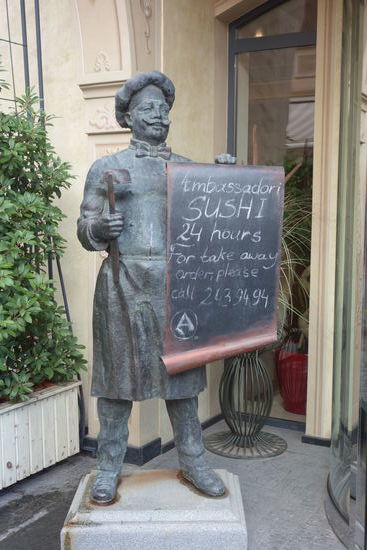 Ambassadori
SUSHI
24 hours
For take away
order, please
call 243.94.94
A